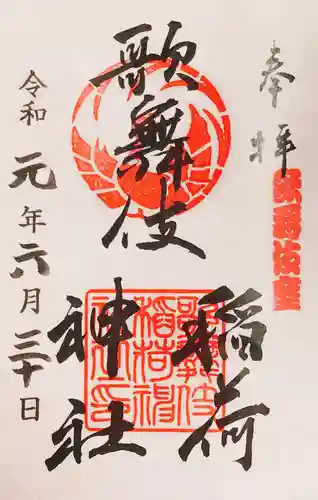 奉拝
歌舞伎座
歌舞伎
稲荷
神社
令和元年六月三十日